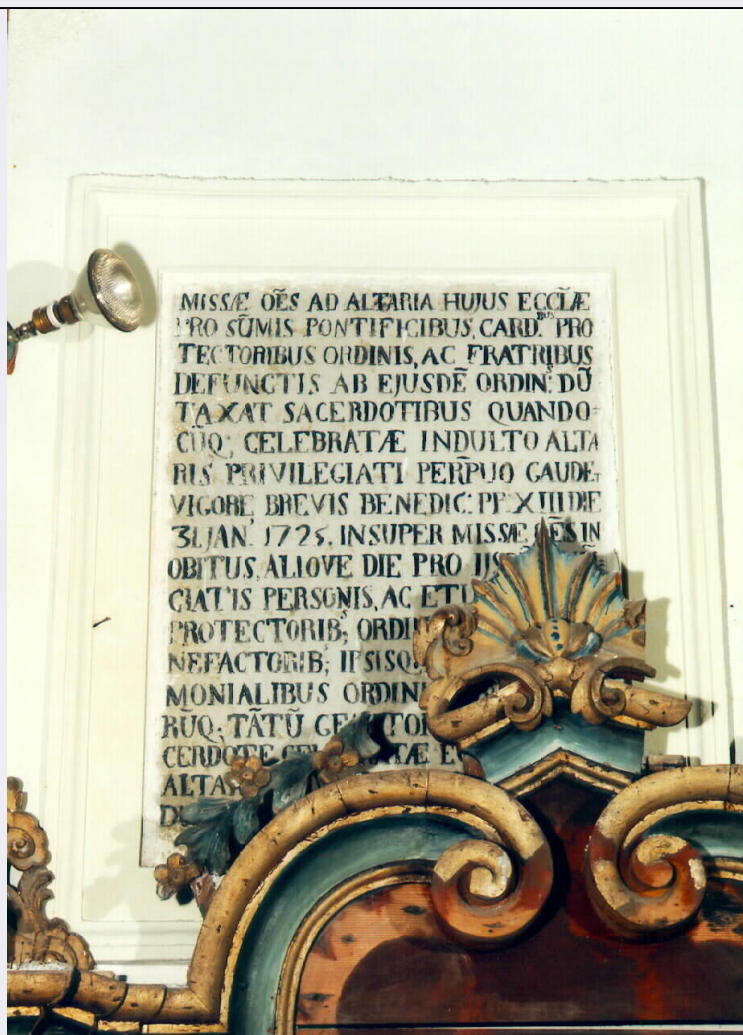 MISSÆ OẼS AD ALTARIA HUJUS ECCL̃Æ
PRO SŨMIS PONTIFICIBUS, CARD.BUS PRO
TECTORIBUS ORDINIS, AC FRATRIBUS
DEFUNCTIS AB EJUSDẼ ORDIN.S DŨ
TAXAT SACERDOTIBUS QUANDO=
CŨQ; CELEBRATÆ INDULTO ALTA
RIS PRIVILEGIATI PERP̃UO GAUDE.T
VIGORE BREVIS BENEDIC: PP. XIII DIE
31. JAN. 1725. INSUPER MISSÆ OẼS IN
OBITUS, ALIOVE DIE PRO
CIATIS PERSONIS, AC
PROTECTORIB.S;
NEFACTORIB;
MONIALIBUS
RŨQ; TÃTŨ
CERDOTE